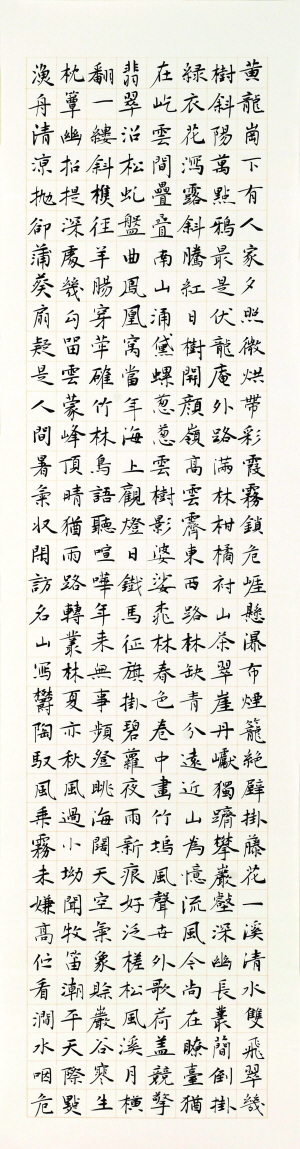 黃龍崗下有人家夕照微烘帶彩霞霧鎖危崕懸瀑布煙籠絕壁掛藤花一溪清水雙飛翠幾
樹斜陽萬點鴉最是伏龍庵外路滿林柑橘衬山茶翠崖丹巘獨躋攀巖壑深幽長叢蘭倒掛
綠衣花瀉露斜騰紅日樹開顏嶺高雲霽東西路林缺青分遠近山為憶流風今尚在瞭臺猶
在屹雲間疊疊南山涌黛螺蔥蔥雲樹影婆娑桃林春色卷中畫竹塢風聲世外歌荷蓋競擎
翡翠沿松虬盤曲鳳凰窩當年海上觀燈日鐵馬征旗掛碧蘿夜雨新痕好泛槎松風溪月橫
翻一縷斜樵徑羊腸穿犖確竹林鳥語聽喧嘩年來無事頻登眺海闊天空氣象賒巖谷寒生
枕簟幽招提深處幾勾留雲蒙峰頂晴猶雨路轉叢林夏亦秋風過小坳聞牧笛潮平天際點
漁舟清涼拋卻蒲葵扇疑是人間暑氣收閑訪名山寫鬱陶馭風乘霧未嫌高佇看澗水咽危